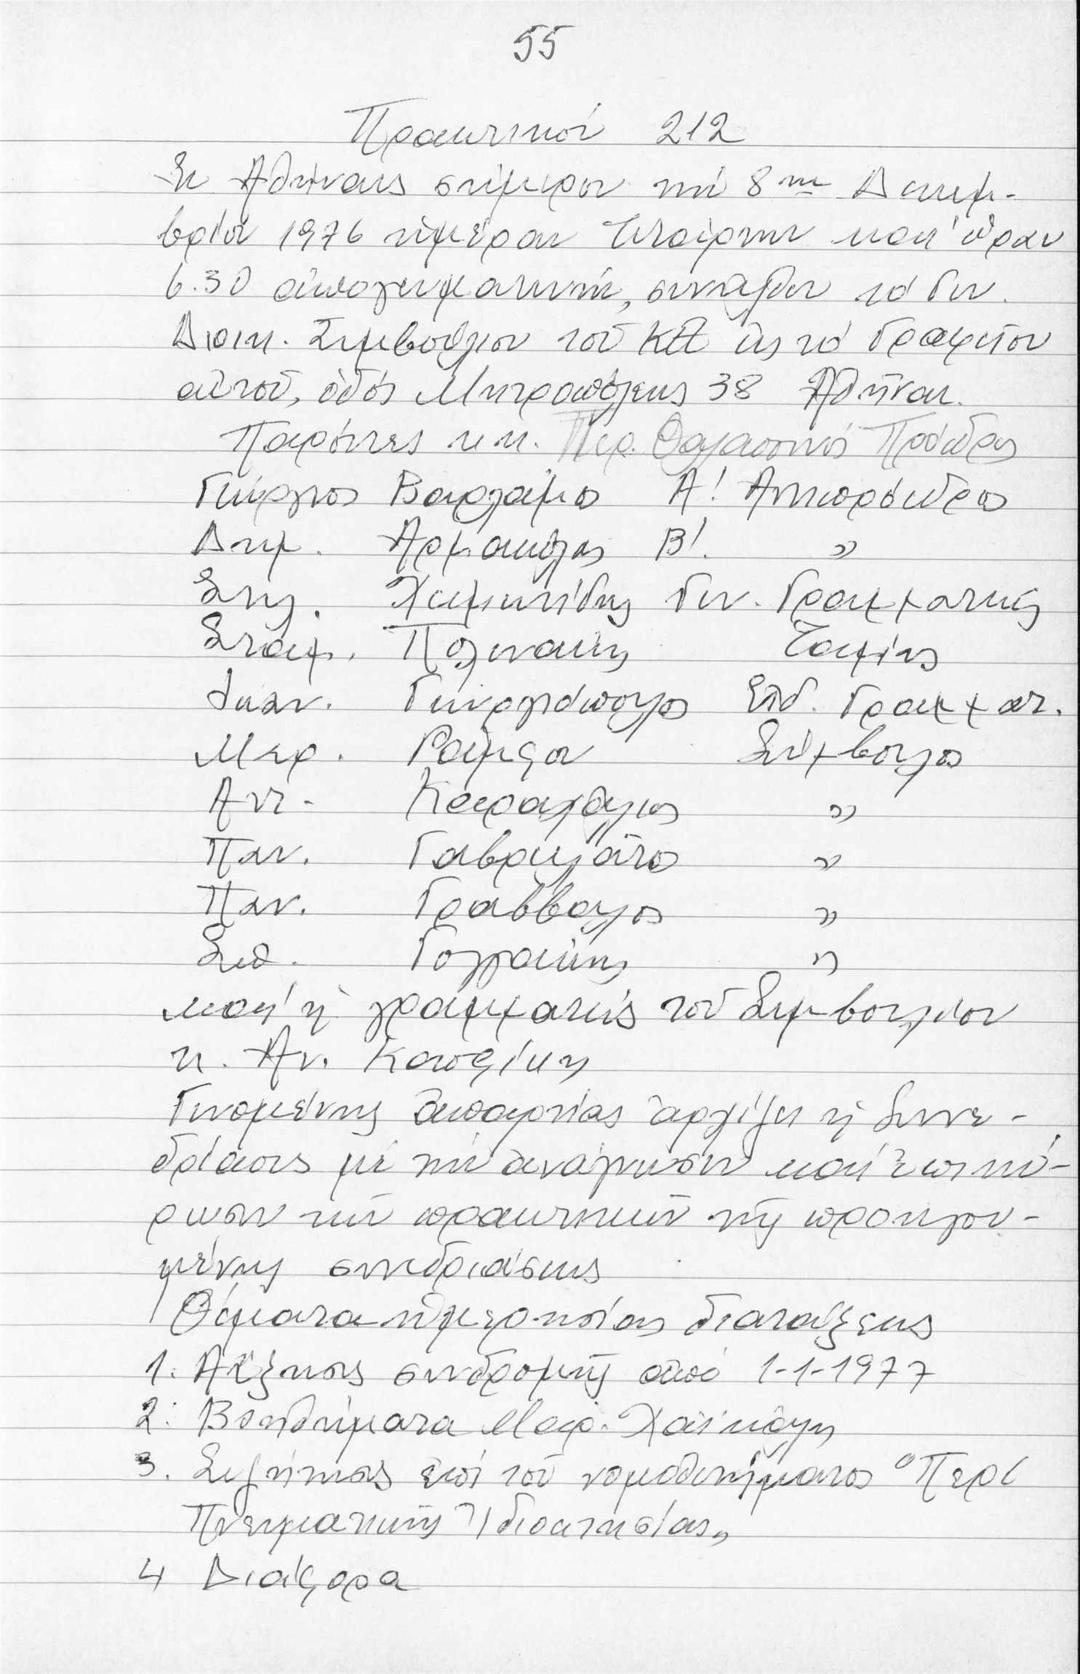 55
Πρακτικόν 212
Ἐν Ἀθήναις σήμερον τήν 8ην Δεκεμ-
βρίου 1976 ἡμέραν Τετάρτην καί ὥραν
6.30 ἀπογευματινήν, συνῆλθεν τό Γεν.
Διοικ. Συμβούλιον τοῦ εἰς τό Γραφεῖον
αὐτοῦ, ὁδός Μητροπόλεως 38 Ἀθῆναι.
Παρόντες κ.κ. Περ. Θαλασσινός Πρόεδρος
Γεώργιος Βαρλάμος Α! Ἀντιπρόεδρος
Δημ. Ἀρμακόλας Β!. "
Στυλ. Γεν. Γραμματεύς
Σταμ. Πολενάκης Ταμίας
Ἰωάν. Γεωργόπουλος Εἰδ. Γραμματ.
Μερ. Ράμφου Σύμβουλος
Ἀντ. Καραχάλιος "
Παν. Γαβριλάτος "
Παν. Γράββαλος "
Σπ. Γογγάκης "
καί ἡ γραμματεύς τοῦ Συμβουλίου
κ. Ἀν. Κατσίκη
Γενομένης ἀπαρτίας ἀρχίζει ἡ Συνε-
δρίασις μέ τήν ἀνάγνωσιν καί ἐπικύ-
ρωσιν τῶν πρακτικῶν τῆς προηγου-
μένης συνεδριάσεως
Θέματα ἡμερησίας διατάξεως
1. Αὔξησις συνδρομῆς ἀπό 1-1-1977
2. Βοηθήματα Μαρ. Χατζιδάκη
3. Συζήτησις ἐπί τοῦ νομοθετήματος "Περί
Πνευματικῆς Ἰδιοκτησίας„
4 Διάφορα